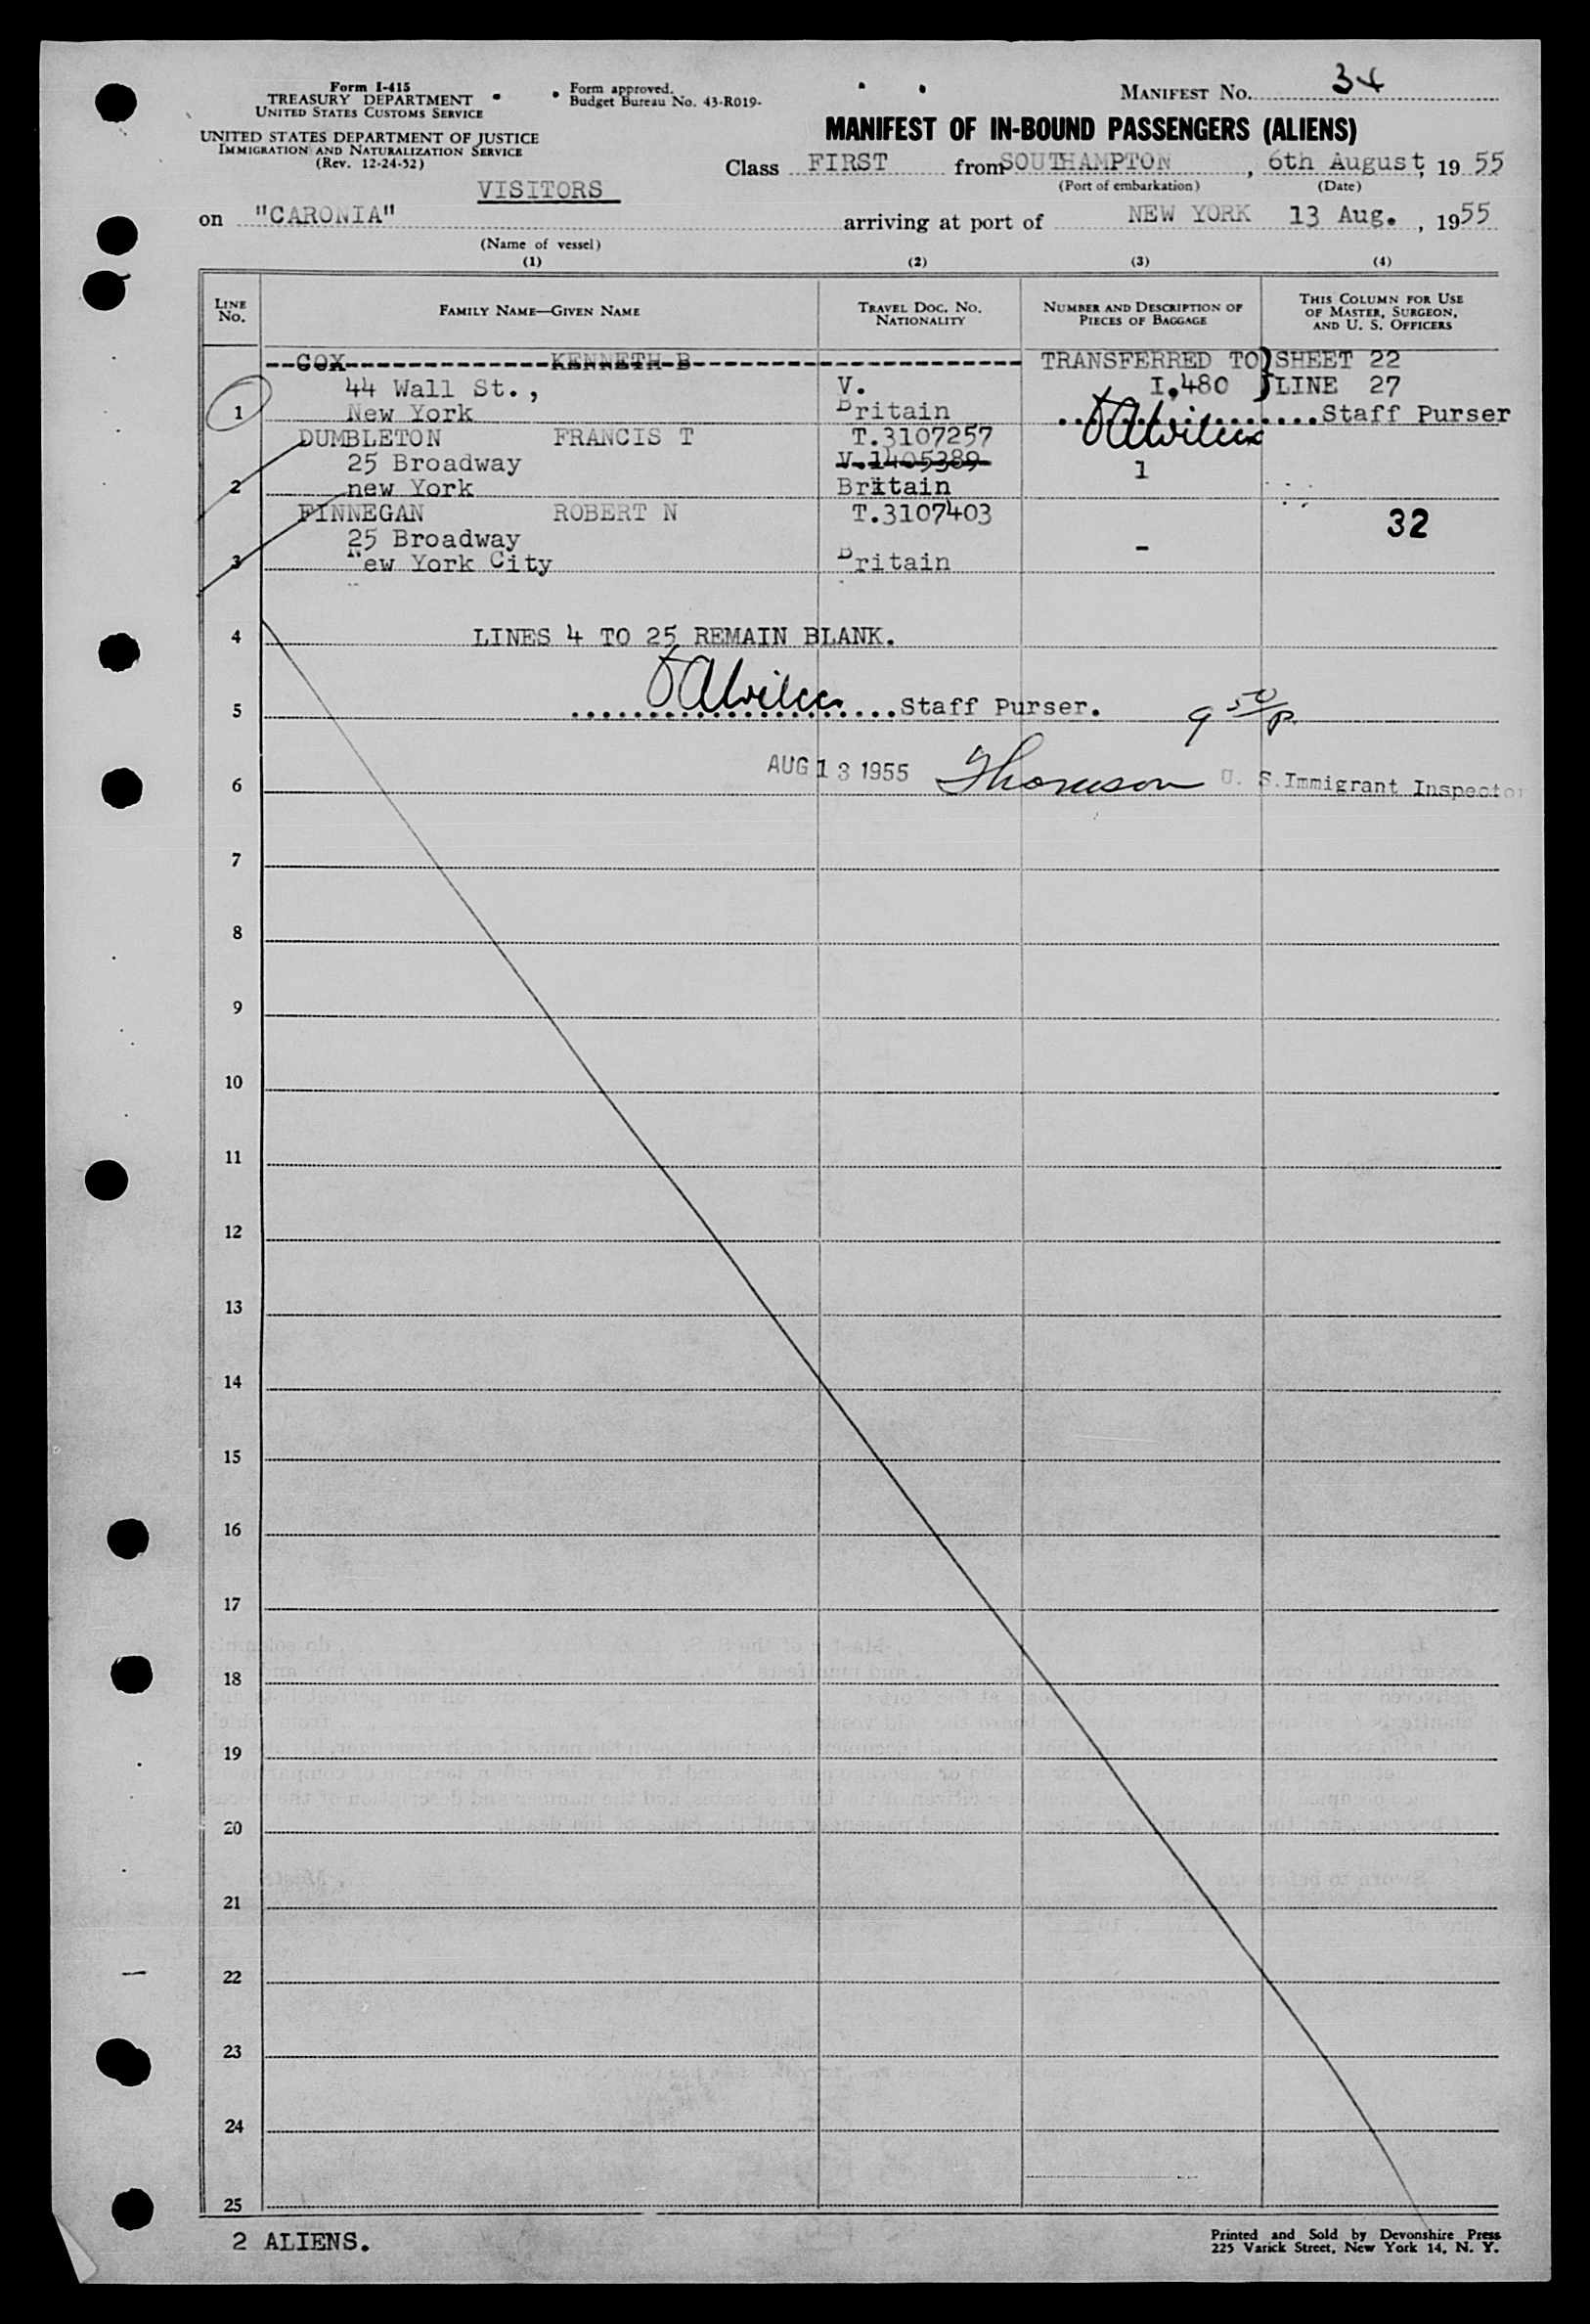 Form I-415
TREASURY DEPARTMENT
UNITED STATES CUSTOMS SERVICE
UNITED STATES DEPARTMENT OF JUSTICE
IMMIGRATION AND NATURALIZATION SERVICE
(Rev. 12-24-52)
Form approved.
Budget Bureau No. 43-R019-
MANIFEST No. 34
MANIFEST OF IN-BOUND PASSENGERS (ALIENS)
Class FIRST from SOUTHAMPTON, 6th August, 19 55
(Port of embarkation) (Date)
VISITORS
on "CARONIA" arriving at port of NEW YORK 13 Aug., 19 55
(Name of vessel)
(1) (2) (3) (4)
LINE No. FAMILY NAME—GIVEN NAME TRAVEL DOC. NO. NATIONALITY NUMBER AND DESCRIPTION OF PIECES OF BAGGAGE THIS COLUMN FOR USE OF MASTER, SURGEON, AND U. S. OFFICERS
--COX-----------KENNETH B----------------- TRANSFERRED TO}SHEET 22
44 Wall St., V. I,480 }LINE 27
1 New York Britain ..................Staff Purser
DUMBLETON FRANCIS T T.3107257
25 Broadway V.1405389 1
2 new York Britain
FINNEGAN ROBERT N T.3107403 32
25 Broadway -
3 New York City Britain
4 LINES 4 TO 25 REMAIN BLANK.
5 ......................Staff Purser. 9 50/P.
6 AUG 13 1955 Thomson U. S. Immigrant Inspector
7
8
9
10
11
12
13
14
15
16
17
18
19
20
21
22
23
24
25
2 ALIENS.
Printed and Sold by Devonshire Press
225 Varick Street, New York 14, N. Y.